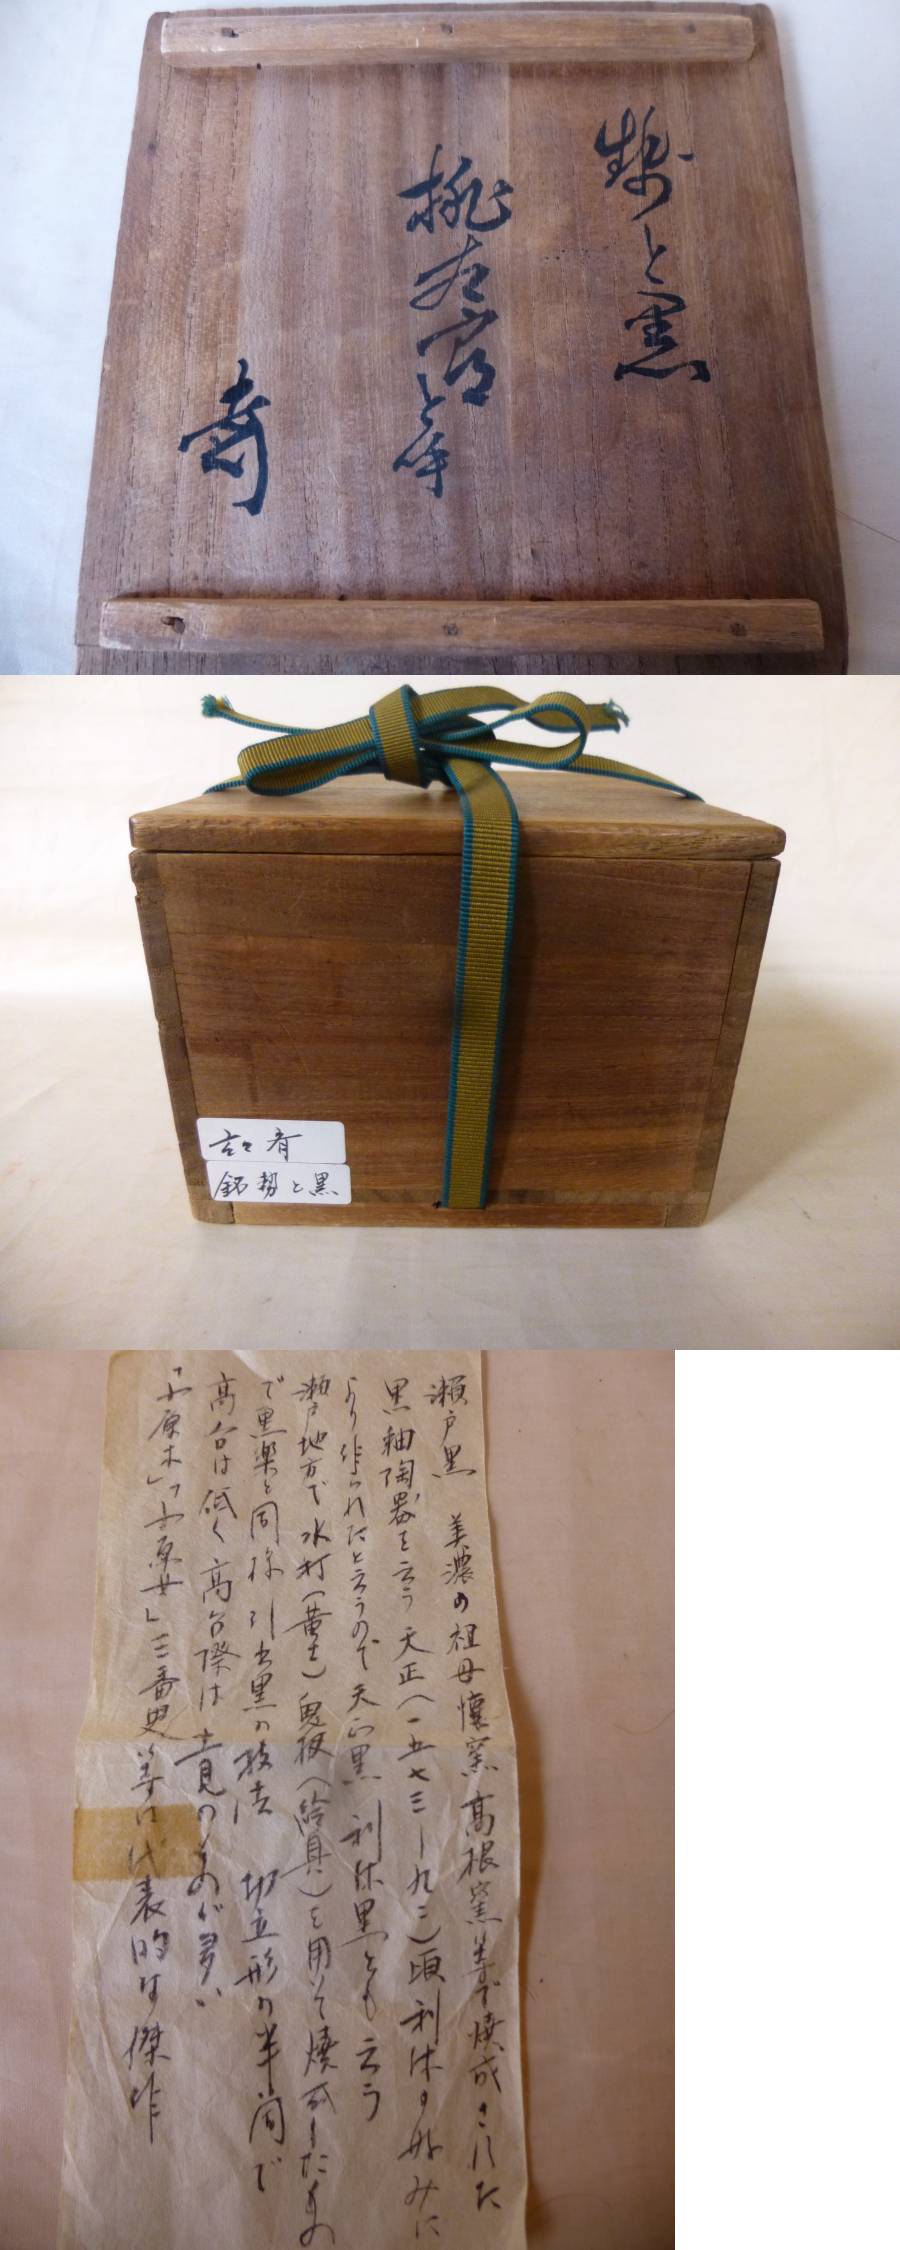 勢と黒
奇
銘 勢と黒
瀬戸黒 美濃の祖母懐窯 高根窯等で焼成された
黒釉陶器を云う 天正(一五七三ー九二)頃利休の好みに
より作られたと云うので天正黒 利休黒とも云う
瀬戸地方で水打(黄土)鬼板(絵具)を用いて焼成したもの
で黒楽と同様引出黒の技法 切立形の半筒で
高台は低く高台際は土見のものが多い
「小原木」「小原女」三番叟等は代表的な傑作